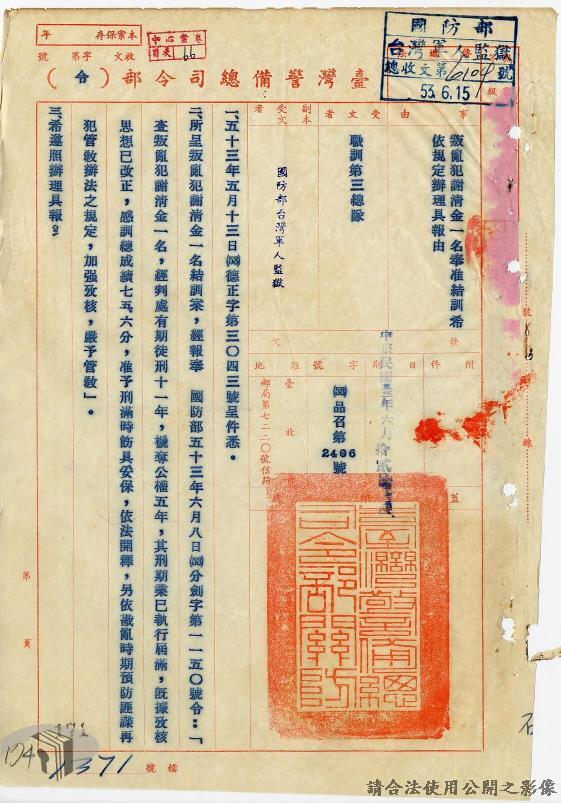 國防部
台灣軍人監獄
總收文第6104號
53.6.15
年 存保案本
號 第 字 文收
中心案卷
目次 66
臺灣警備總司令部（令）
事由
叛亂犯謝清金一名奉准結訓希
依規定辦理具報由
受文者
職訓第三總隊
副本
受文者
國防部台灣軍人監獄
發文
附件
日期
中華民國五十三年六月拾貳日
字號
(53)品召第2406號
駐地
臺北
郵局第七二二〇號信箱
臺灣警備總司令部關防
一、五十三年五月十三日(53)德正字第三〇四三號呈件悉。
二、所呈叛亂犯謝清金一名結訓案，經報奉 國防部五十三年六月八日(53)分劍字第一一五〇號令：「
查叛亂犯謝清金一名，經判處有期徒刑十一年，褫奪公權五年，其刑期業已執行屆滿，既據攷核
思想已改正，感訓總成績七五、六分，准予刑滿時飭具妥保，依法開釋，另依戡亂時期預防匪諜再
犯管敎辦法之規定，加强攷核，嚴予管敎」。
三、希遵照辦理具報。
第 頁
檔號
1371
請合法使用公開之影像